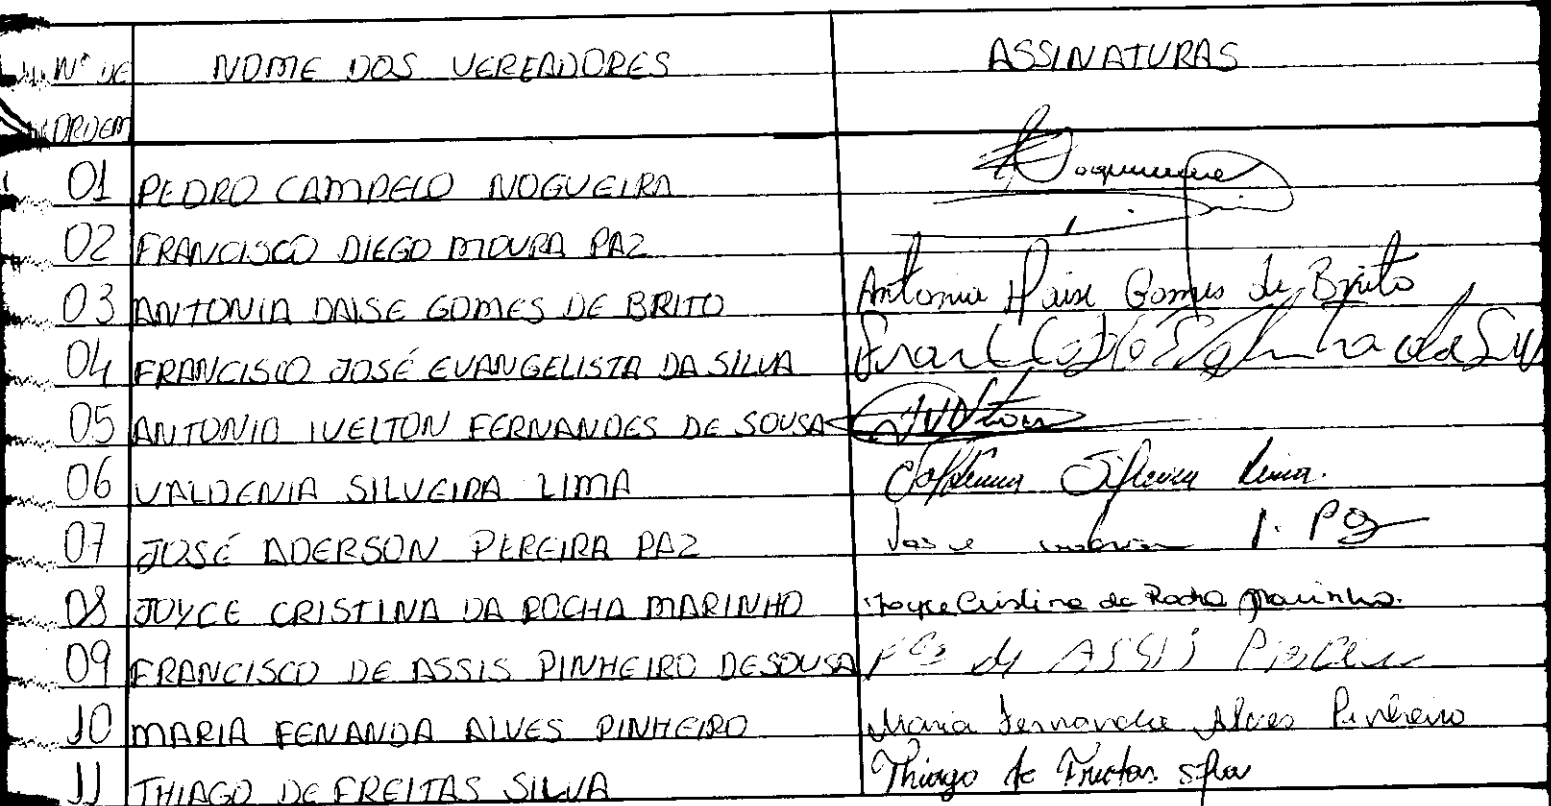 Nº DE NOME DOS VEREADORES ASSINATURAS
ORDEM
01 PEDRO CAMPELO NOGUEIRA
02 FRANCISCO DIEGO MOURA PAZ
03 ANTONIA DAISE GOMES DE BRITO Antonia Daise Gomes de Brito
04 FRANCISCO JOSÉ EVANGELISTA DA SILVA
05 ANTONIO IVELTON FERNANDES DE SOUSA
06 VALDENIA SILVEIRA LIMA Valdenia Silveira Lima.
07 JOSÉ ADERSON PEREIRA PAZ
08 JOYCE CRISTINA DA ROCHA MARINHO Joyce Cristina da Rocha Marinho.
09 FRANCISCO DE ASSIS PINHEIRO DE SOUSA Fco de ASSIS
10 MARIA FENANDA ALVES PINHEIRO Maria Fernanda Alves Pinheiro
11 THIAGO DE FREITAS SILVA Thiago de Freitas Silva